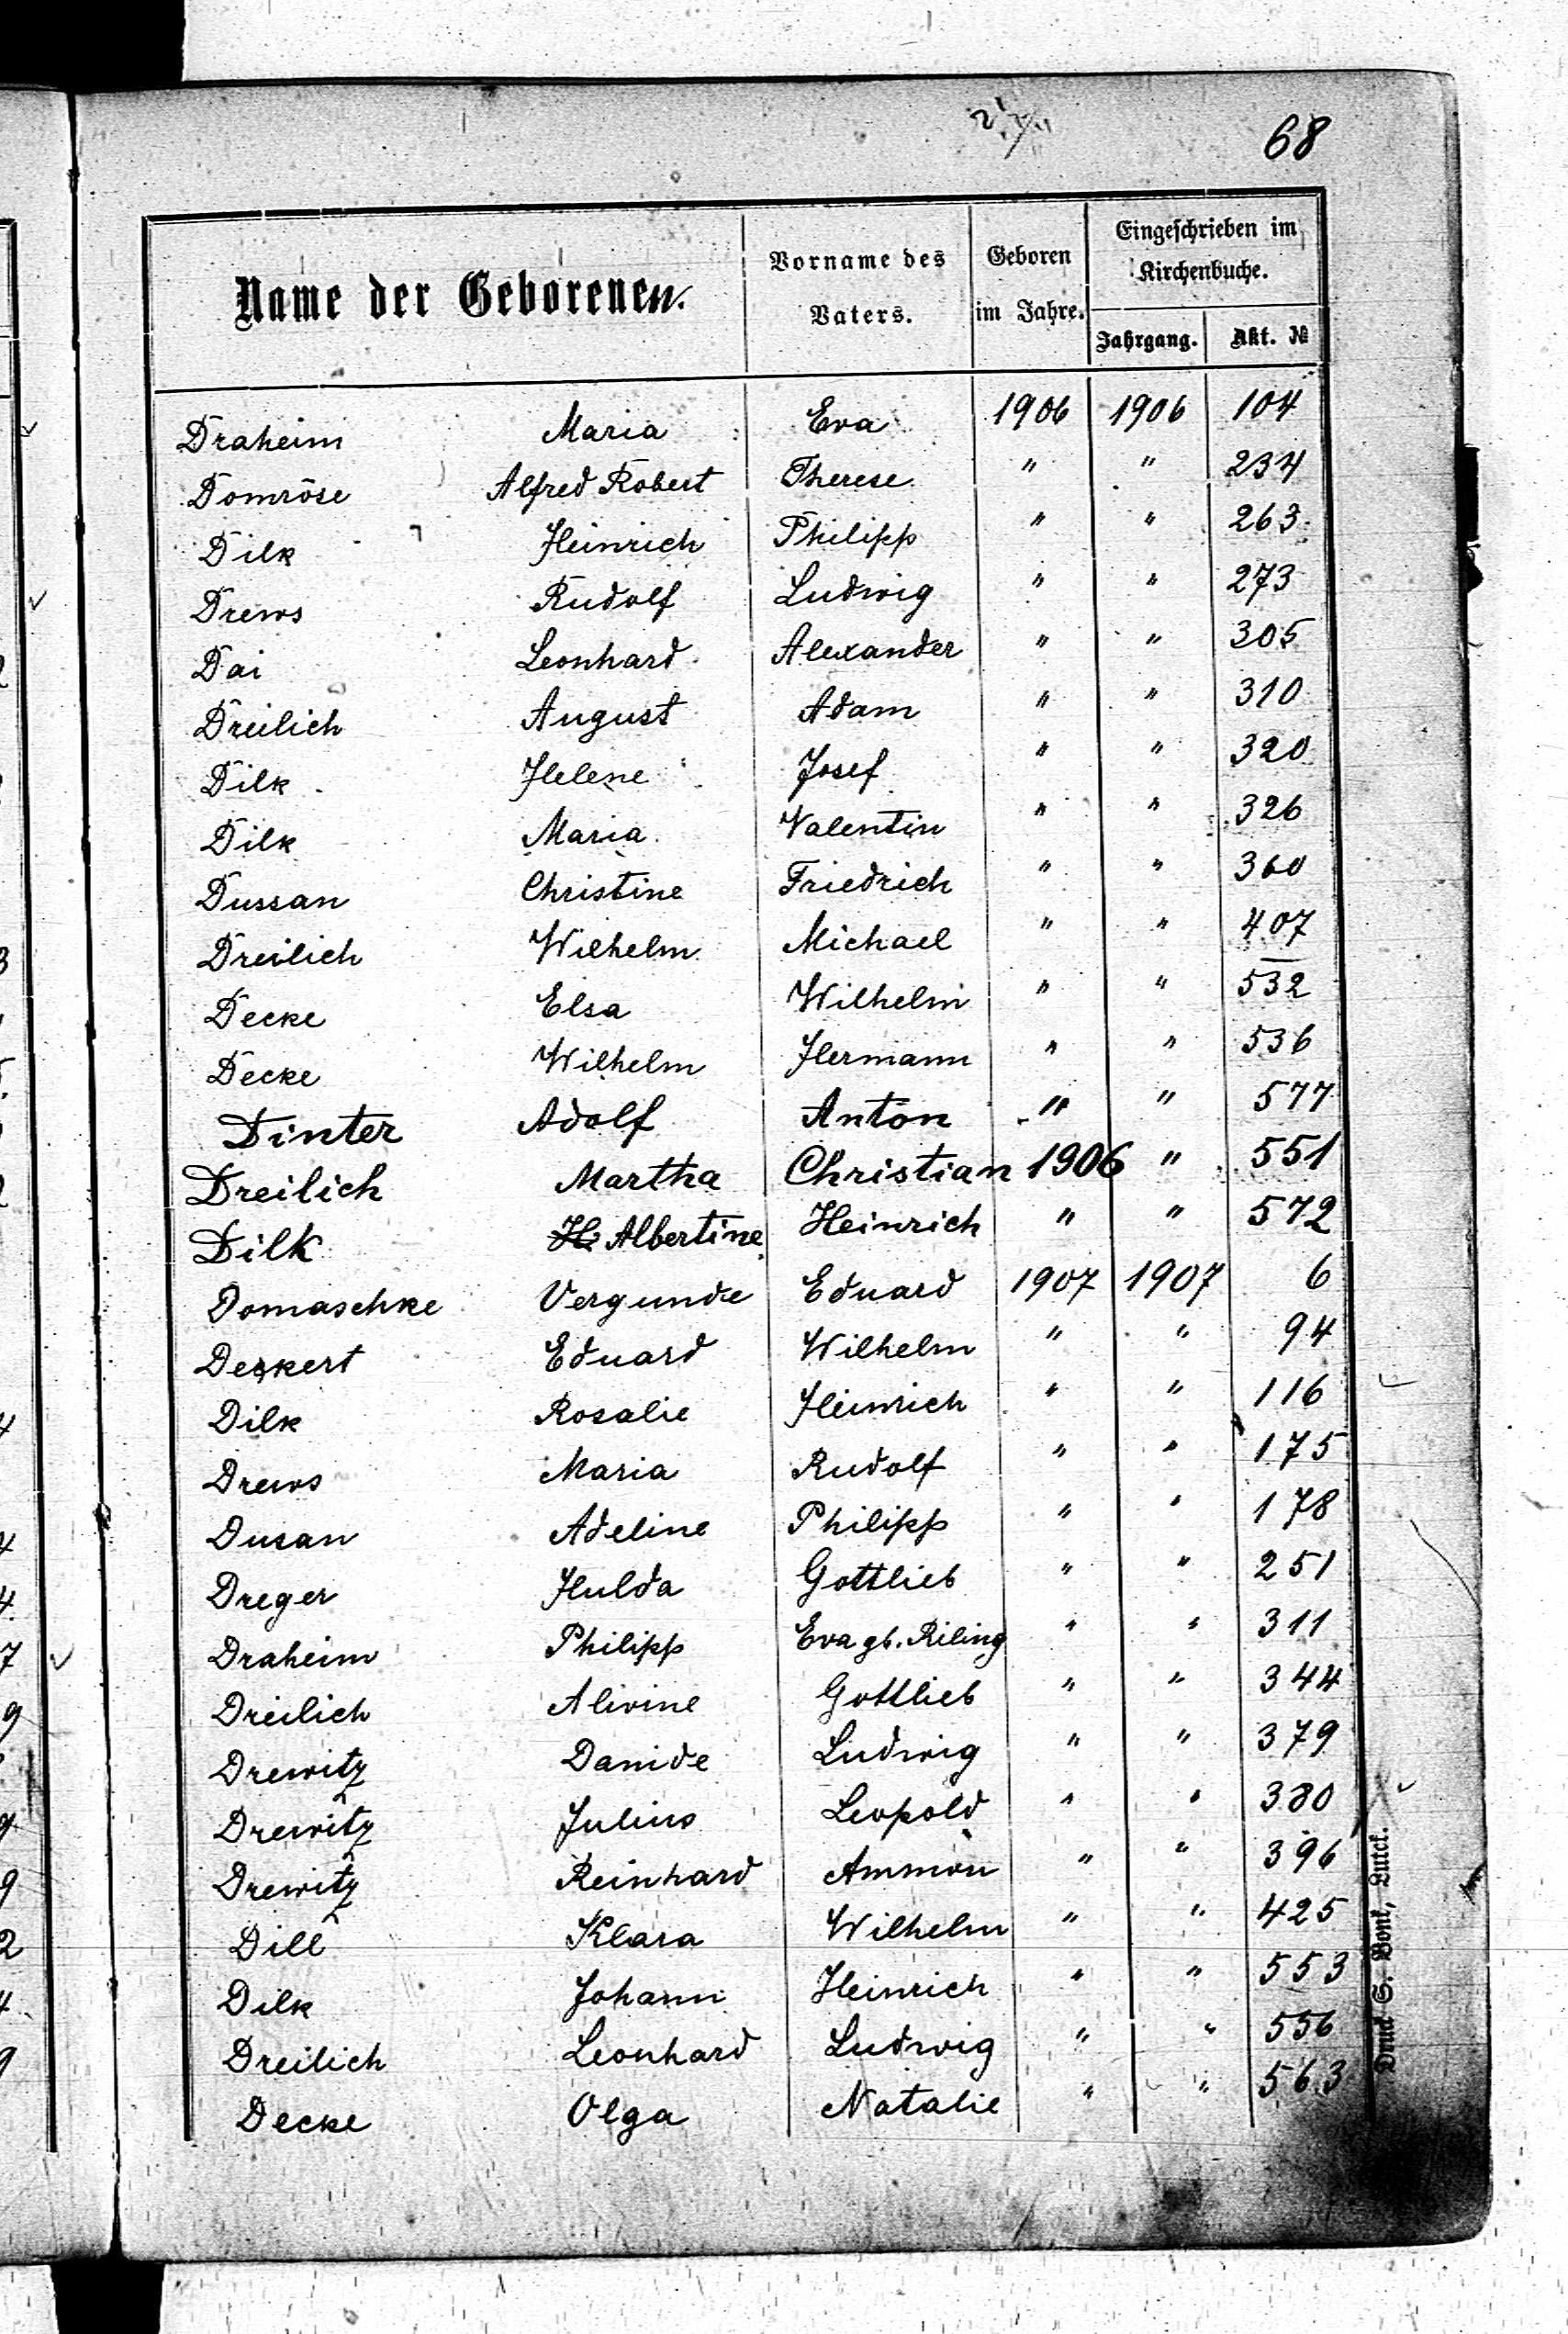 68
Name der Geborenen. Vorname des Vaters. Geboren im Jahre. Eingeschrieben im Kirchenbuche.
Jahrgang. Akt. №
Draheim Maria Eva 1906 1906 104
Domröse Alfred Robert Therese " " 234
Dilk Heinrich Philipp " " 263
Drews Rudolf Ludwig " " 273
Dai Leonhard Alexander " " 305
Dreilich August Adam " " 310
Dilk Helene Josef " " 320
Dilk Maria Valentin " " 326
Dussan Christine Friedrich " " 360
Dreilich Wilhelm Michael " " 407
Decke Elsa Wilhelm " " 532
Decke Wilhelm Hermann " " 536
Dinter Adolf Anton " " 577
Dreilich Martha Christian 1906 " 551
Dilk Albertine Heinrich " " 572
Domaschke Vergunde Eduard 1907 1907 6
Deskert Eduard Wilhelm " " 94
Dilk Rosalie Heinrich " " 116
Drews Maria Rudolf " " 175
Dusan Adeline Philipp " " 178
Dreger Hulda Gottlieb " " 251
Draheim Philipp Eva gb. Riling " " 311
Dreilich Alivine Gottlieb " " 344
Drewitz Danide Ludwig " " 379
Drewitz Julius Leopold " " 380
Drewitz Reinhard Ammon " " 396
Dill Klara Wilhelm " " 425
Dilk Johann Heinrich " " 553
Dreilich Leonhard Ludwig " " 556
Decke Olga Natalie " " 563
Druck S. Bonk, Lutck.